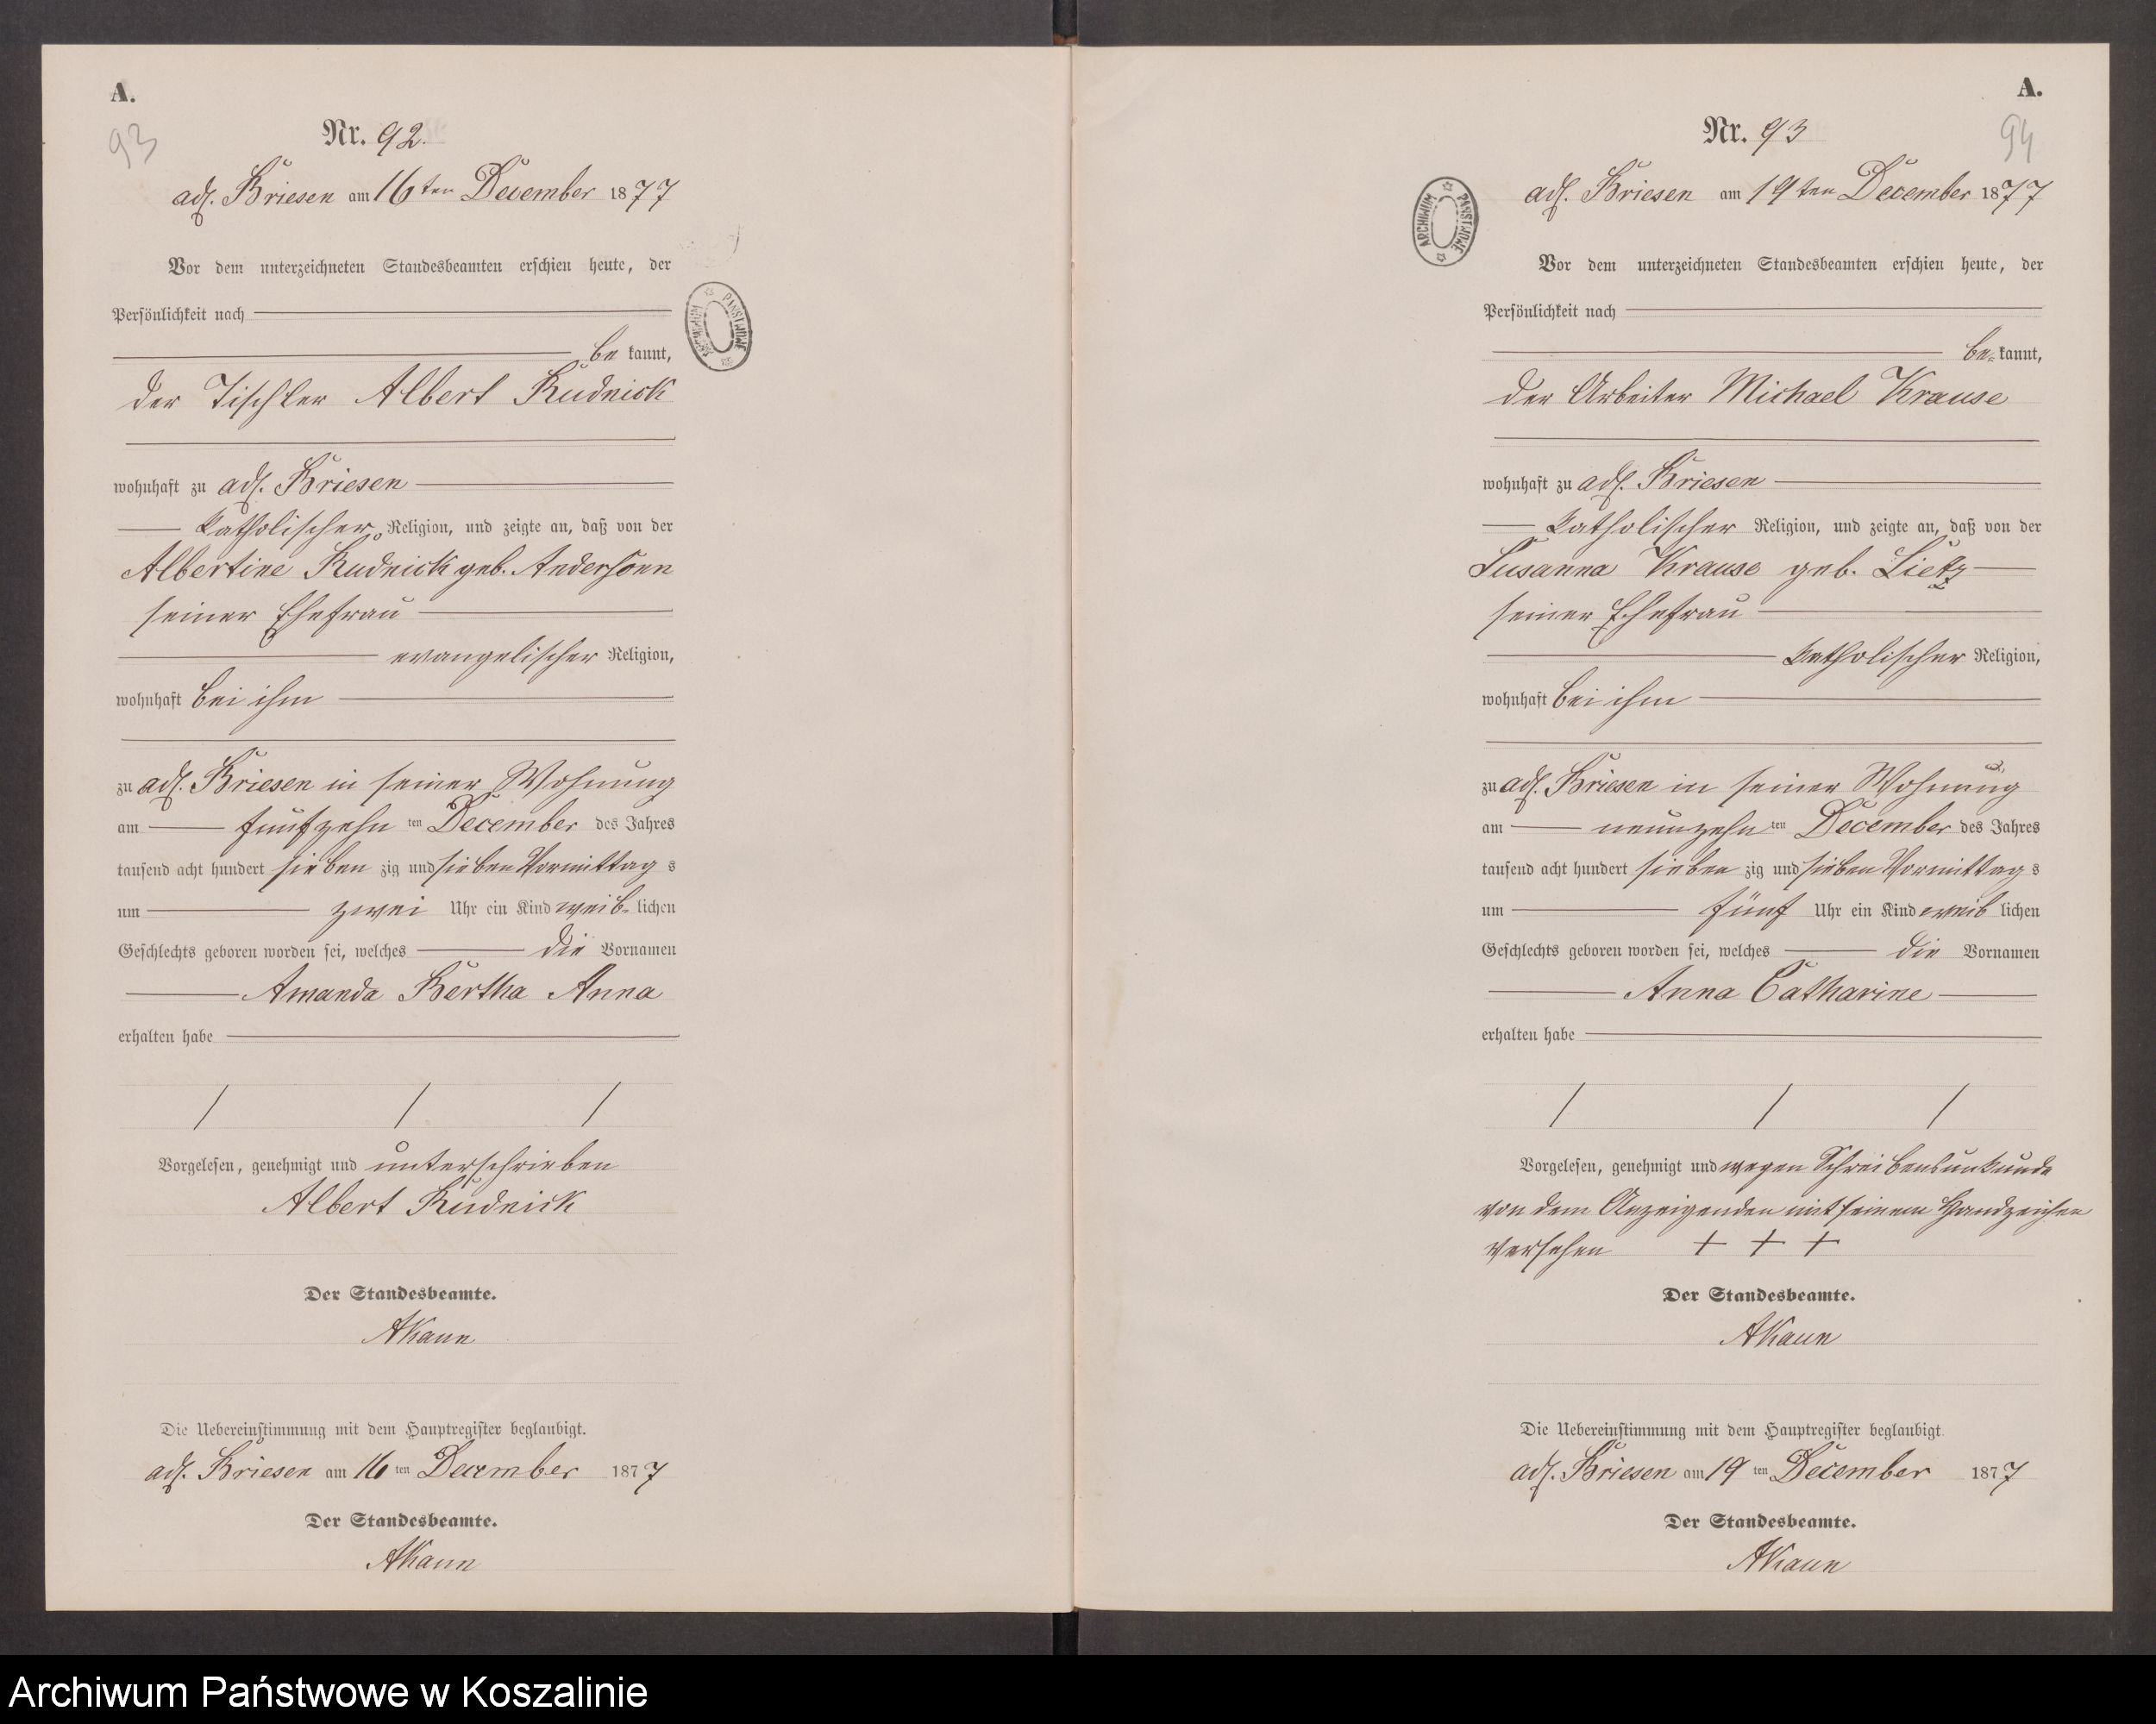 A.
93
Nr. 92.
adl. Briesen am 16ten December 1877
Vor dem unterzeichneten Standesbeamten erschien heute, der
Persönlichkeit nach
be kannt,
der Tischler Albert Rudnick
wohnhaft zu adl. Briesen
katholischer Religion, und zeigte an, daß von der
Albertine Rudnick geb. Andersonn
seiner Ehefrau
evangelischer Religion,
wohnhaft bei ihm
zu adl. Briesen in seiner Wohnung
am fünfzehn ten December des Jahres
tausend acht hundert sieben zig und sieben Vormittag s
um zwei Uhr ein Kind weib- lichen
Geschlechts geboren worden sei, welches die Vornamen
Amanda Bertha Anna
erhalten habe
Vorgelesen, genehmigt und unterschrieben
Albert Rudnick
Der Standesbeamte.
AKaun
Die Uebereinstimmung mit dem Hauptregister beglaubigt.
adl. Briesen am 16 ten December 1877
Der Standesbeamte.
AKaun
ARCHIWUM PAŃSTWOWE
A.
94
Nr. 93
adl. Briesen am 19ten December 1877
ARCHIWUM PAŃSTWOWE
Vor dem unterzeichneten Standesbeamten erschien heute, der
Persönlichkeit nach
be- kannt,
der Arbeiter Michael Krause
wohnhaft zu adl. Briesen
katholischer Religion, und zeigte an, daß von der
Susanna Krause geb. Lietz
seiner Ehefrau
katholischer Religion,
wohnhaft bei ihm
zu adl. Briesen in seiner Wohnung
am neunzehn ten December des Jahres
tausend acht hundert sieben zig und sieben Vormittag s
um fünf Uhr ein Kind weib lichen
Geschlechts geboren worden sei, welches die Vornamen
Anna Catharine
erhalten habe
Vorgelesen, genehmigt und wegen Schreibensunkunde
von dem Anzeigenden mit seinem Handzeichen
versehen + + +
Der Standesbeamte.
AKaun
Die Uebereinstimmung mit dem Hauptregister beglaubigt.
adl. Briesen am 19 ten December 1877
Der Standesbeamte.
AKaun
Archiwum Państwowe w Koszalinie